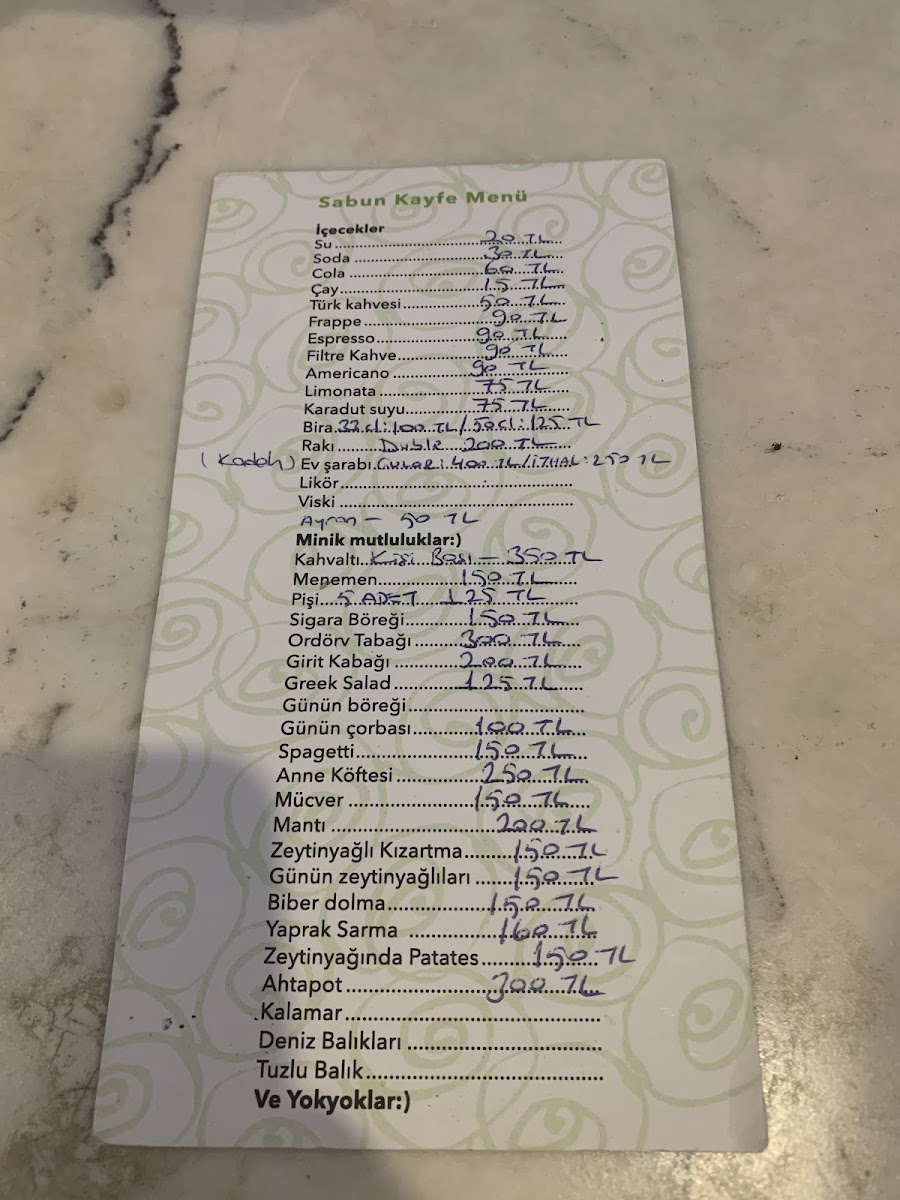 Sabun Kayfe Menü
İçecekler
Su.......................................20 TL...
Soda ....................................30 TL...
Cola ....................................60 TL...
Çay.......................................15 TL...
Türk kahvesi..........................50 TL...
Frappe .................................90 TL...
Espresso...............................90 TL...
Filtre Kahve...........................90 TL...
Americano .............................90 TL...
Limonata ...............................75 TL...
Karadut suyu..........................75 TL...
Bira.33 cl:100 TL/50cl:125 TL
Rakı ........Duble 200 TL...
(Kadeh) Ev şarabı 400 TL/İTHAL:250 TL
Likör.......................................
Viski .......................................
Ayran - 50 TL
Minik mutluluklar:)
Kahvaltı..Kişi Başı - 350 TL
Menemen...............150 TL...
Pişi...5 ADET...125 TL...
Sigara Böreği..........150 TL...
Ordörv Tabağı ........300 TL...
Girit Kabağı ..........200 TL...
Greek Salad ...........125 TL...
Günün böreği.......................................
Günün çorbası..........100 TL...
Spagetti...............150 TL...
Anne Köftesi ..........250 TL...
Mücver .................150 TL...
Mantı ...................200 TL
Zeytinyağlı Kızartma........150 TL
Günün zeytinyağlıları ......150 TL
Biber dolma...............150 TL
Yaprak Sarma .............160 TL
Zeytinyağında Patates........150 TL
Ahtapot ..................300 TL
Kalamar.......................................
Deniz Balıkları ...............................
Tuzlu Balık.......................................
Ve Yokyoklar:)